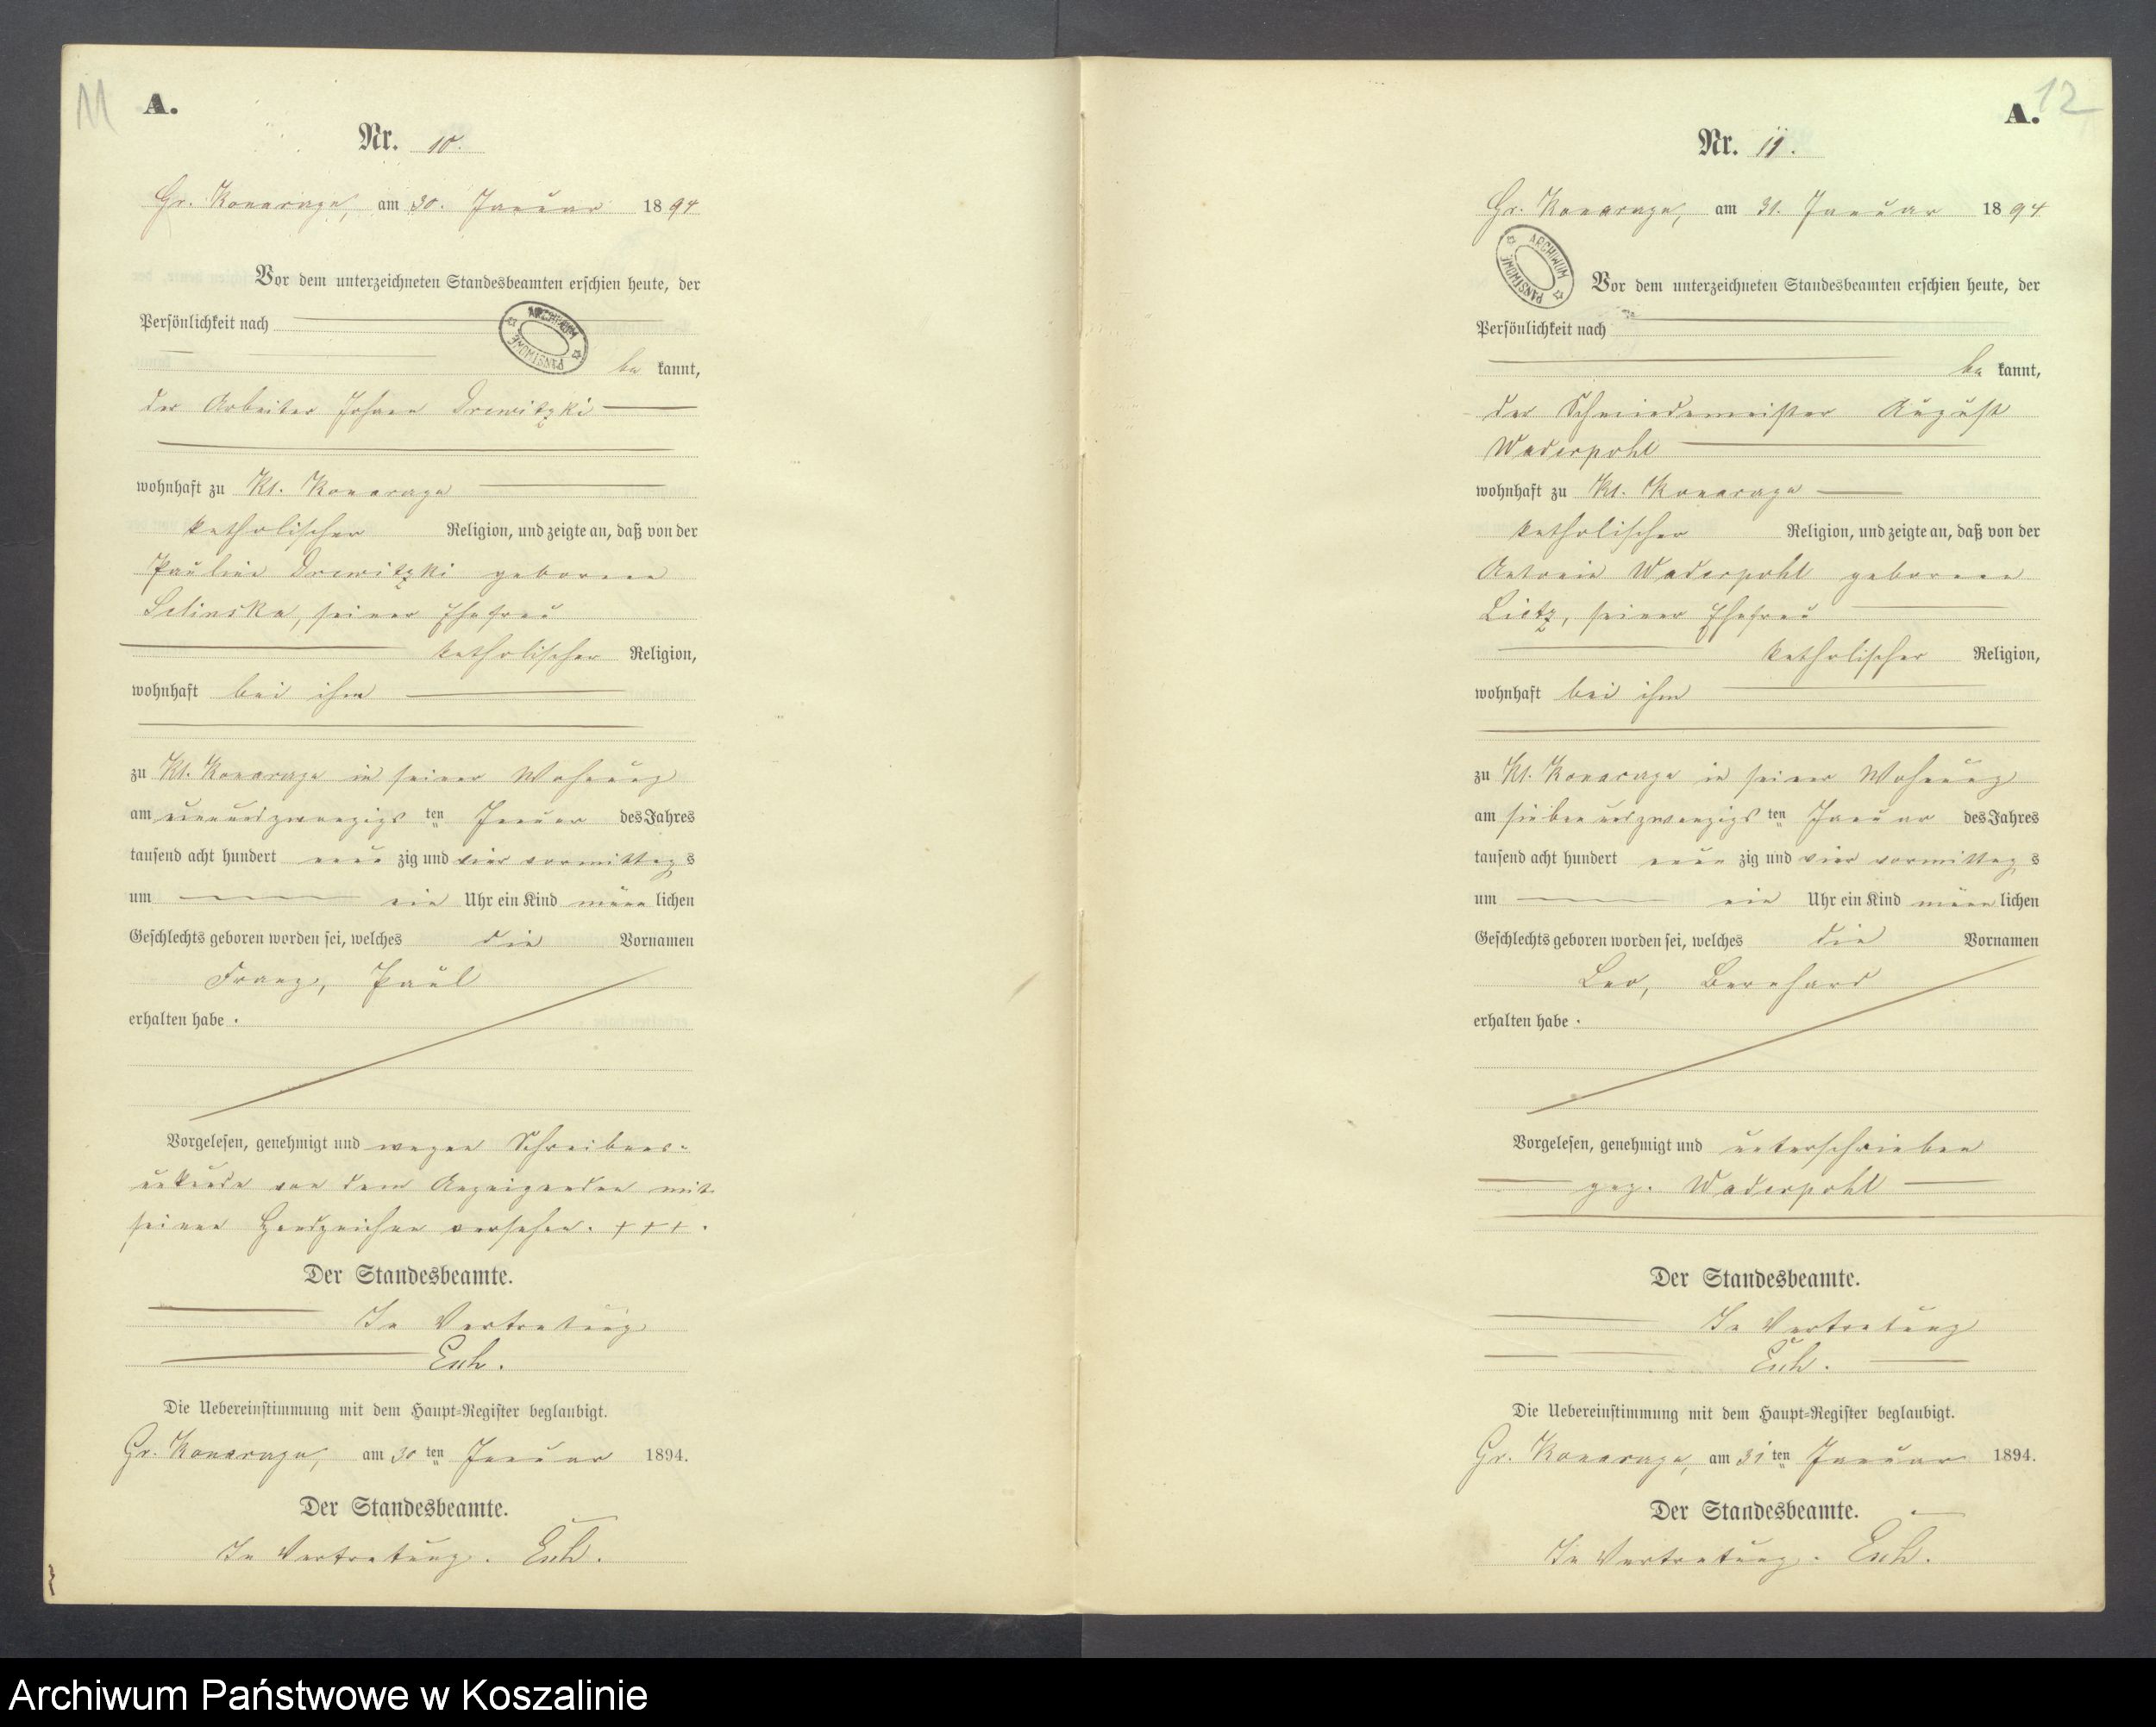 11
A.
Nr. 10.
Gr. Konarczyn, am 30. Januar 1894
Vor dem unterzeichneten Standesbeamten erschien heute, der
Persönlichkeit nach
ARCHIWUM PAŃSTWOWE
be kannt,
der Arbeiter Johann Drewitzki
wohnhaft zu Kl. Konarczyn
katholischer Religion, und zeigte an, daß von der
Pauline Drewitzki geborenen
Selinska, seiner Ehefrau
katholischer Religion,
wohnhaft bei ihm
zu Kl. Konarczyn in seiner Wohnung
am neunundzwanzigs ten Januar des Jahres
tausend acht hundert neun zig und vier vormittag s
um ein Uhr ein Kind männ lichen
Geschlechts geboren worden sei, welches die Vornamen
Franz, Paul
erhalten habe.
Vorgelesen, genehmigt und wegen Schreibens-
unkunde von dem Anzeigenden mit
seinen Handzeichen versehen. +++.
Der Standesbeamte.
In Vertretung
Die Uebereinstimmung mit dem Haupt-Register beglaubigt.
Gr. Konarczyn, am 30 ten Januar 1894.
Der Standesbeamte.
In Vertretung.
12
A.
Nr. 11.
Gr. Konarczyn, am 31. Januar 1894
ARCHIWUM PAŃSTWOWE
Vor dem unterzeichneten Standesbeamten erschien heute, der
Persönlichkeit nach
be kannt,
der Schmiedemeister August
Waderpohl
wohnhaft zu Kl. Konarczyn
katholischer Religion, und zeigte an, daß von der
Antonie Waderpohl geborenen
Lietz, seiner Ehefrau
katholischer Religion,
wohnhaft bei ihm
zu Kl. Konarczyn in seiner Wohnung
am siebenundzwanzigs ten Januar des Jahres
tausend acht hundert neun zig und vier vormittag s
um ein Uhr ein Kind männ lichen
Geschlechts geboren worden sei, welches die Vornamen
Leo, Bernhard
erhalten habe.
Vorgelesen, genehmigt und unterschrieben
gez. Waderpohl
Der Standesbeamte.
In Vertretung
Die Uebereinstimmung mit dem Haupt-Register beglaubigt.
Gr. Konarczyn, am 31 ten Januar 1894.
Der Standesbeamte.
In Vertretung.
Archiwum Państwowe w Koszalinie